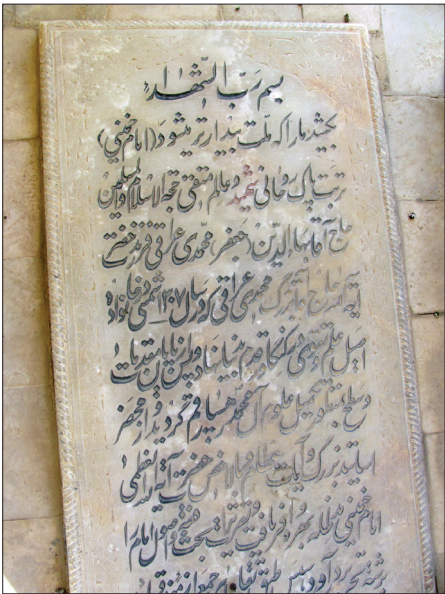 بسم رَبّ الشّهداء
بکشید ما را که ملت بیدارتر میشود (امام خمینی)
تربت پاک روحانی شهید و عالم متقی حجة الاسلام والمسلمین
حاج آقا بهاءالدین (جعفر) محمدی عراقی فرزند حضرت
آیة الله حاج آقا بزرگ محمدی عراقی که در سال ۱۳۰۷ شمسی در خانواده
اصیل علم و تقوی در کنگاور قدم بدنیا نهاد و پس از پایان مقدمات
و سطح بمنظور تکمیل علوم آل محمد رهسپار قم گردید و از محضر
اساتید بزرگ و آیات عظام و بالاخص حضرت آیة الله العظمی
امام خمینی مدظله بهره وافر یافت و تقریرات بحث فقه و اصول امام را
برشته تحریر درآورد سپس طبق تقاضای جمعی از مؤمنین